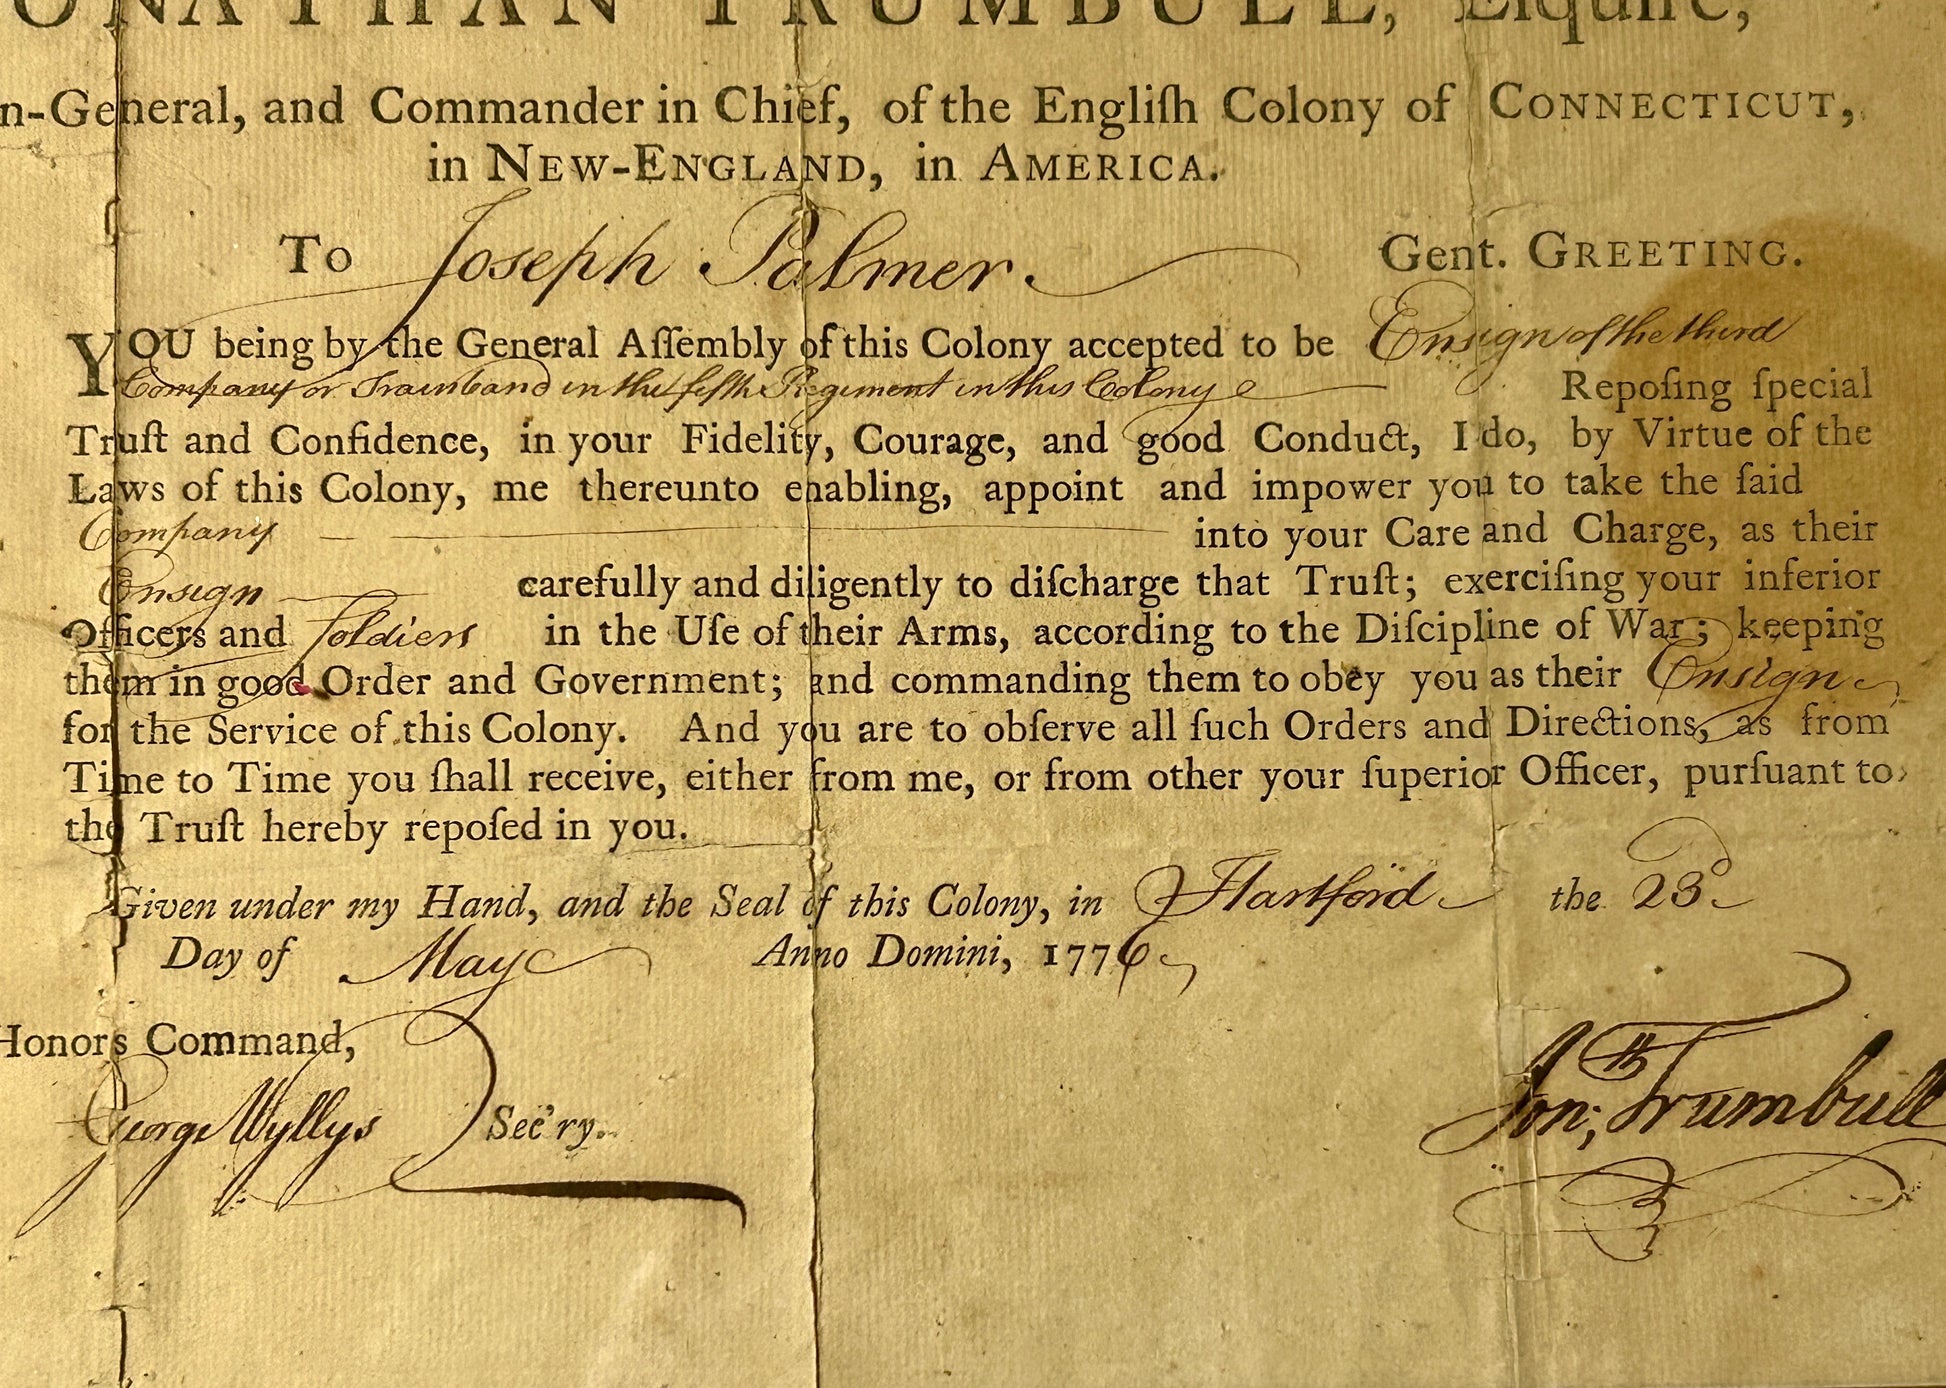 ONATHAN TRUMBULL, Eſquire,
n-General, and Commander in Chief, of the Engliſh Colony of CONNECTICUT,
in NEW-ENGLAND, in AMERICA.
To Joseph Palmer Gent. GREETING.
YOU being by the General Aſſembly of this Colony accepted to be Ensign of the third
Company or Trainband in the fifth Regiment in this Colony Repoſing ſpecial
Truſt and Confidence, in your Fidelity, Courage, and good Conduct, I do, by Virtue of the
Laws of this Colony, me thereunto enabling, appoint and impower you to take the ſaid
Company into your Care and Charge, as their
Ensign carefully and diligently to diſcharge that Truſt; exerciſing your inferior
Officers and Soldiers in the Uſe of their Arms, according to the Diſcipline of War; keeping
them in good Order and Government; and commanding them to obey you as their Ensign
for the Service of this Colony. And you are to obſerve all ſuch Orders and Directions, as from
Time to Time you ſhall receive, either from me, or from other your ſuperior Officer, purſuant to
the Truſt hereby repoſed in you.
Given under my Hand, and the Seal of this Colony, in Hartford the 23d
Day of May Anno Domini, 1776
Honors Command,
George Wyllys Sec'ry.
Jonth; Trumbull